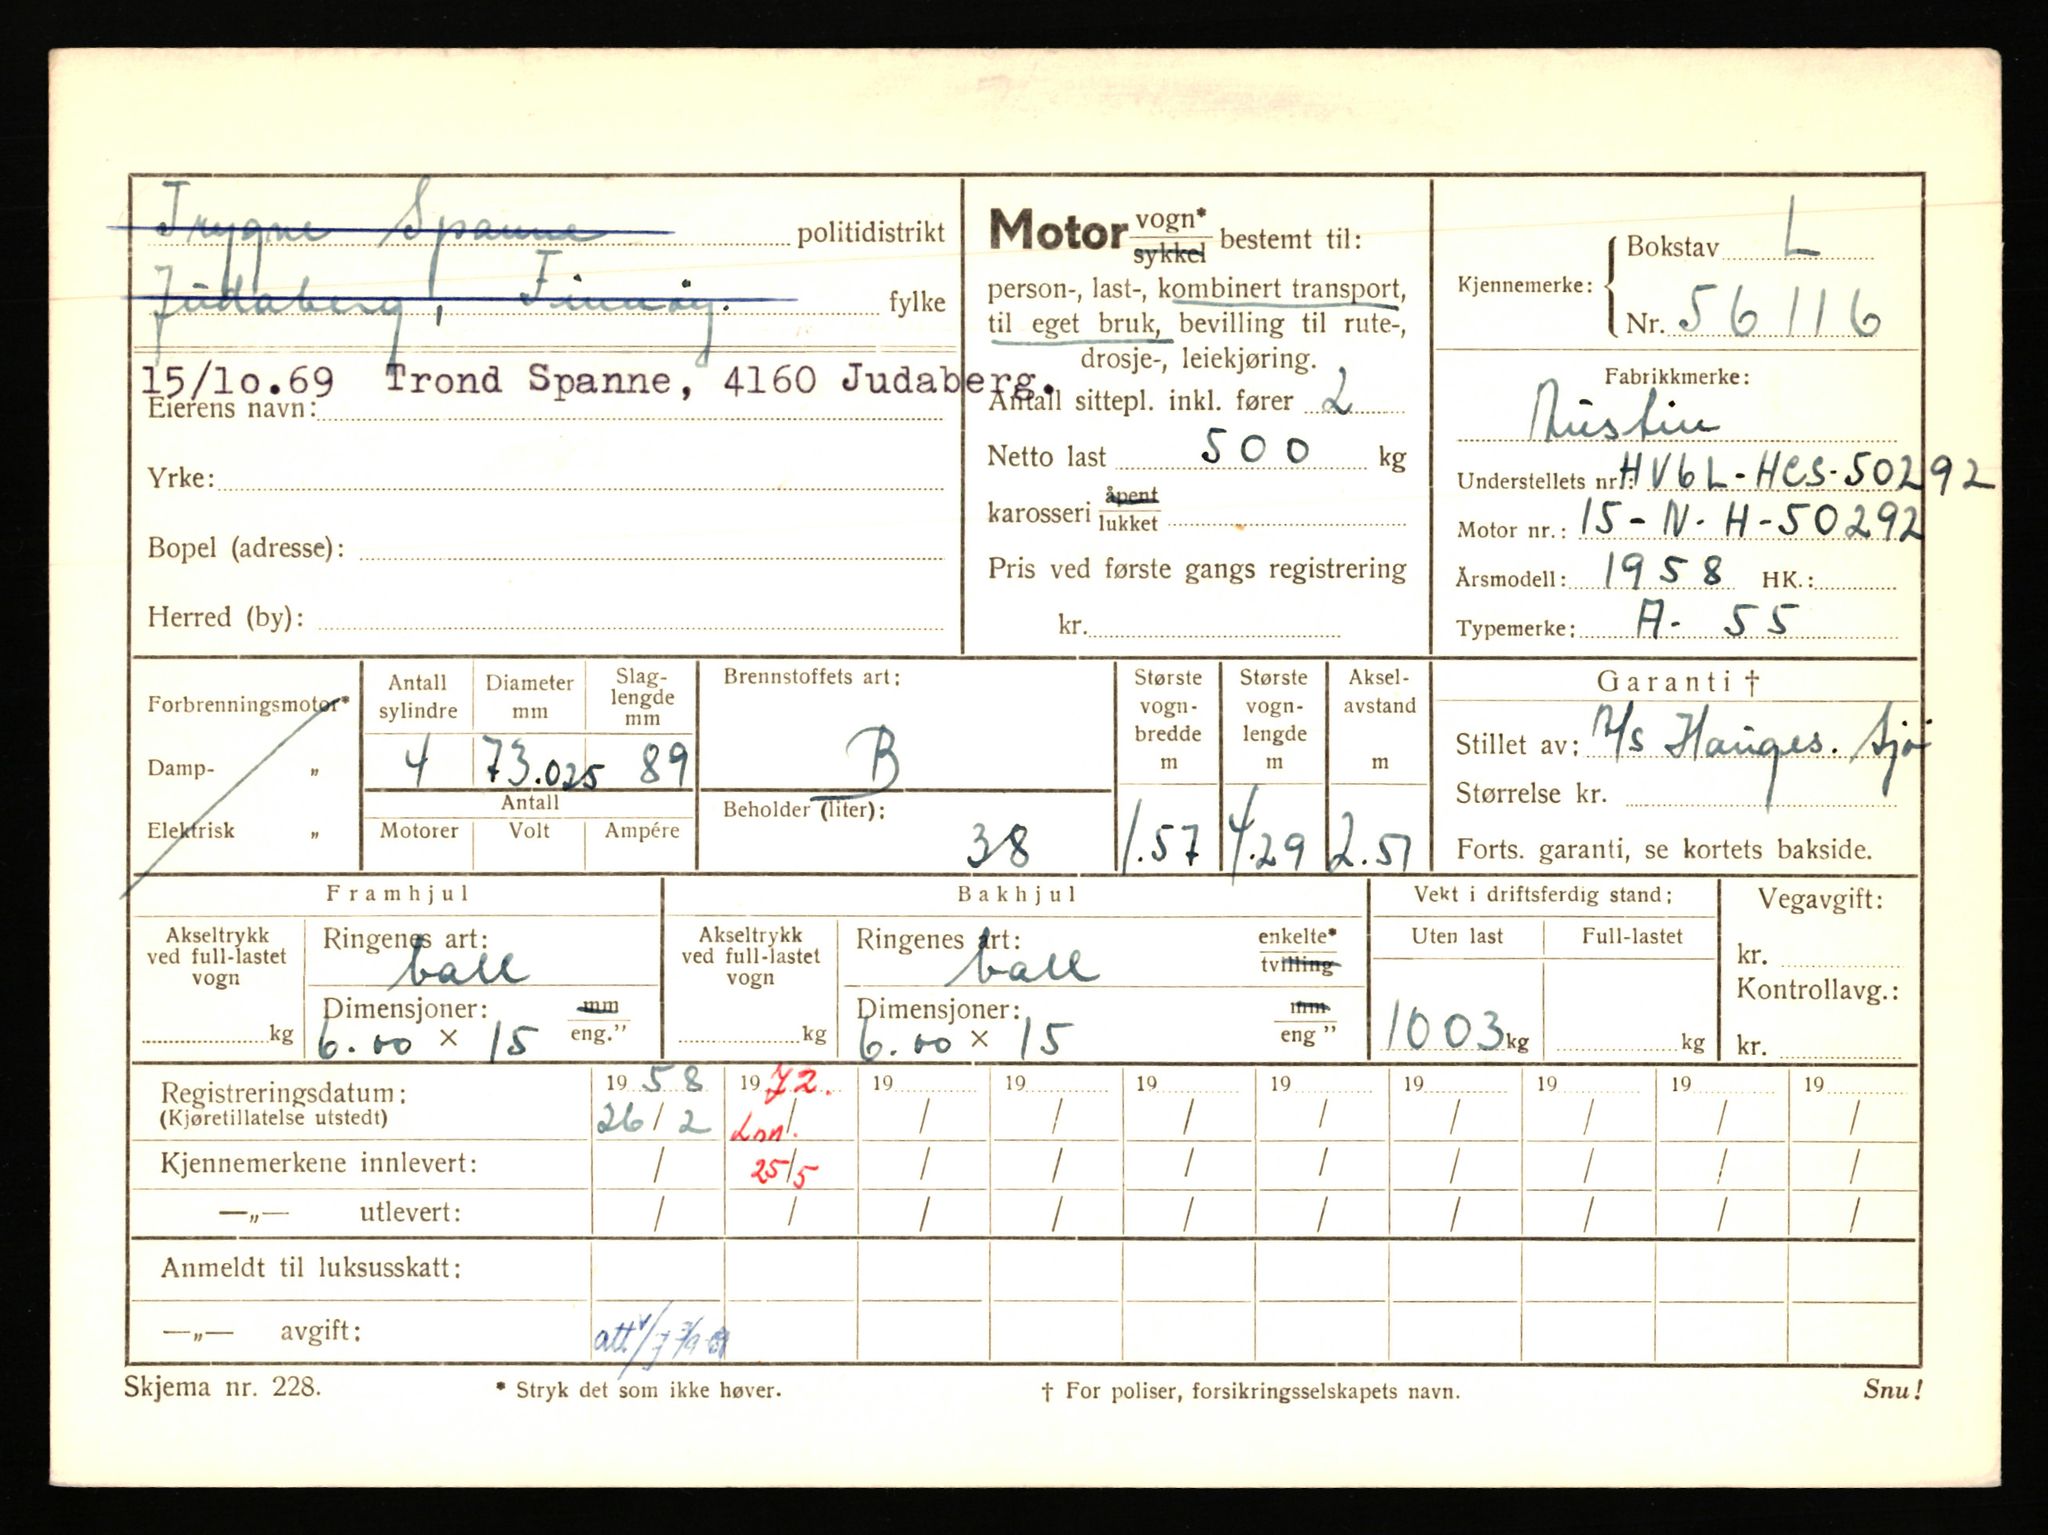 Trygve Spanne politidistrikt
Judaberg, Finnöy. fylke
15/10.69 Trond Spanne, 4160 Judaberg.
Eierens navn:
Yrke:
Bopel (adresse):
Herred (by):
Motor vogn* / sykkel bestemt til:
person-, last-, kombinert transport,
til eget bruk, bevilling til rute-,
drosje-, leiekjøring.
Antall sittepl. inkl. fører 2
Netto last 500 kg
karosseri åpent / lukket
Pris ved første gangs registrering
kr.
Kjennemerke: Bokstav L
Nr. 56116
Fabrikkmerke:
Austin
Understellets nr.: HV6L-HCS-50292
Motor nr.: 15-N-H-50292
Årsmodell: 1958 HK.:
Typemerke: A-55
Forbrenningsmotor*
Damp- „
Elektrisk „
Antall sylindre Diameter mm Slag-lengde mm
4 73.025 89
Antall
Motorer Volt Ampére
Brennstoffets art:
B
Beholder (liter):
38
Største vogn-bredde m
1.57
Største vogn-lengde m
4.29
Aksel-avstand m
2.51
Garanti †
Stillet av: A/s Hauges. Sjø
Størrelse kr.
Forts. garanti, se kortets bakside.
Framhjul
Akseltrykk ved full-lastet vogn
kg
Ringenes art:
ball
Dimensjoner: mm / eng.”
6.00 × 15
Bakhjul
Akseltrykk ved full-lastet vogn
kg
Ringenes art: enkelte* / tvilling
ball
Dimensjoner: mm / eng ”
6.00 × 15
Vekt i driftsferdig stand;
Uten last Full-lastet
1003 kg kg
Vegavgift:
kr.
Kontrollavg.:
kr.
Registreringsdatum: 19 58 19 72. 19 19 19 19 19 19 19 19
(Kjøretillatelse utstedt) 26/2 / / / / / / / / /
Kjennemerkene innlevert: / 25/5 / / / / / / / /
—„— utlevert: / / / / / / / / / /
Anmeldt til luksusskatt:
—„— avgift: att
Skjema nr. 228. * Stryk det som ikke høver. † For poliser, forsikringsselskapets navn. Snu!